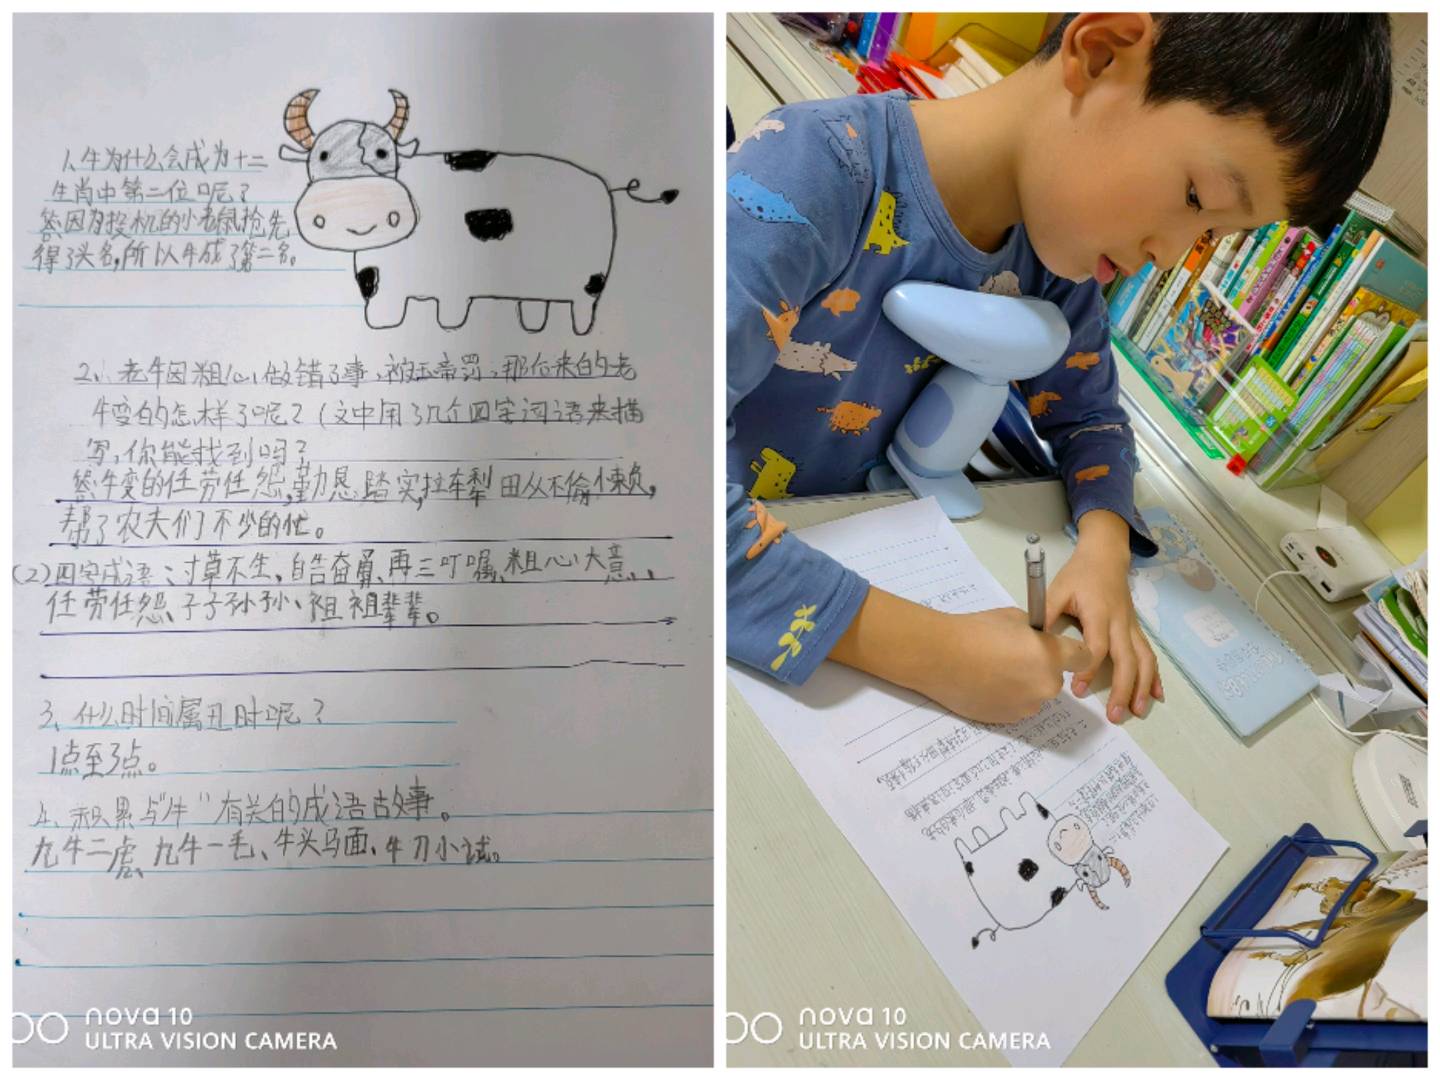 1、牛为什么会成为十二
生肖中第二位呢？
答:因为投机的小老鼠抢先
得了头名,所以牛成了第二名。
2、老牛因粗心做错了事,被玉帝罚,那后来的老
牛变的怎样了呢？(文中用了几个四字词语来描
写,你能找到吗？
答:牛变的任劳任怨,勤恳踏实,拉车犁田从不偷懒,
帮了农夫们不少的忙。
(2)四字成语:寸草不生、自告奋勇、再三叮嘱、粗心大意、
任劳任怨、子子孙孙、祖祖辈辈。
3、什么时间属丑时呢？
1点至3点。
4、积累与“牛”有关的成语故事。
九牛二虎、九牛一毛、牛头马面、牛刀小试。
nova 10
ULTRA VISION CAMERA
nova 10
ULTRA VISION CAMERA